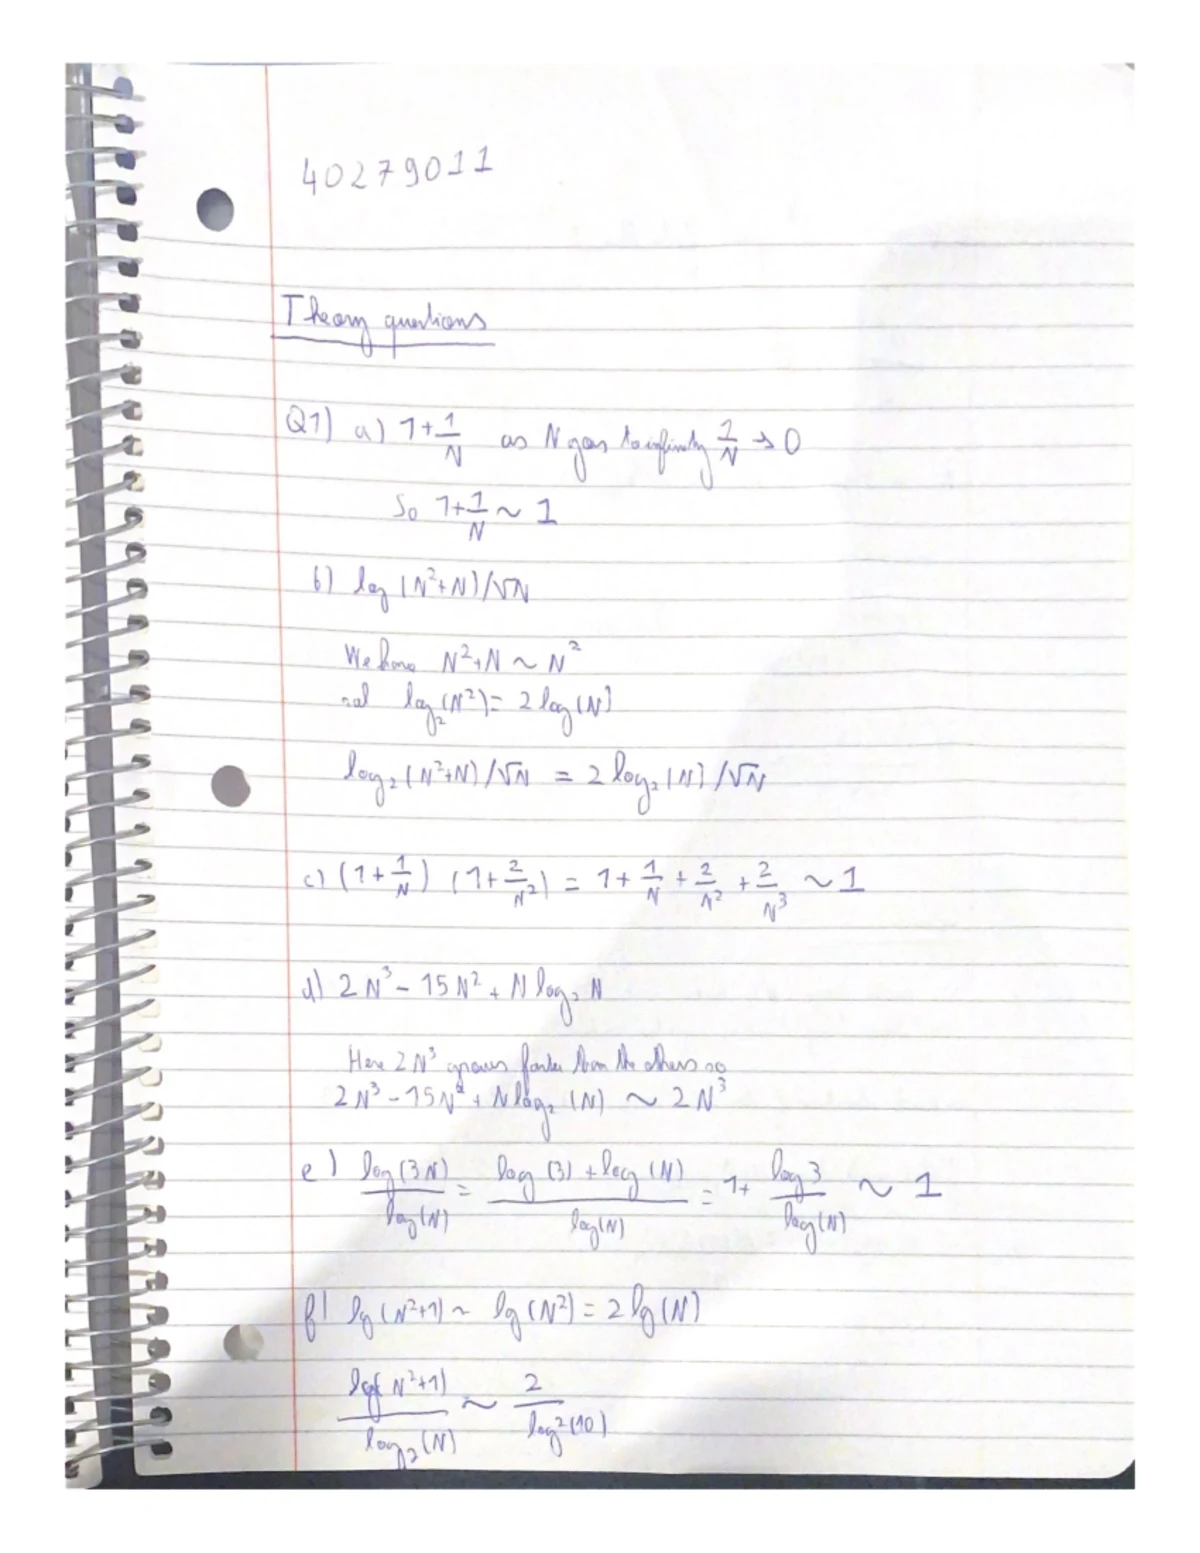 40279011
Theory questions
Q1) a) 1+1/N as N goes to infinity 1/N → 0
So 1+1/N ~ 1
b) log (N²+N)/√N
We have N²+N ~ N²
log₂(N²)= 2 log(N)
log₂(N²+N)/√N = 2 log₂(N)/√N
c) (1+1/N) (1+2/N²) = 1+1/N+2/N²+2/N³ ~ 1
d) 2N³- 15N² + N log₂ N
Here 2N³ grows faster than the others so
2N³-15N²+ N log₂ (N) ~ 2N³
e) log(3N)/log(N) = log(3)+log(N)/log(N) = 1+ log 3/log(N) ~ 1
f) lg(N²+1) ~ lg(N²) = 2 lg(N)
lg(N²+1)/log₂(N) ~ 2/log²(10)